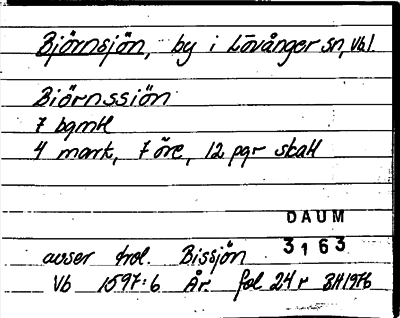 Björnsjön, by i Lövånger sn, Vb l.
Biörnssiön
7 bgmtl
4 mark, 7 öre, 12 pgr skatt
DAUM
3163
avser trol. Bissjön
Vb 1597:6 År fol 24 r BH1976